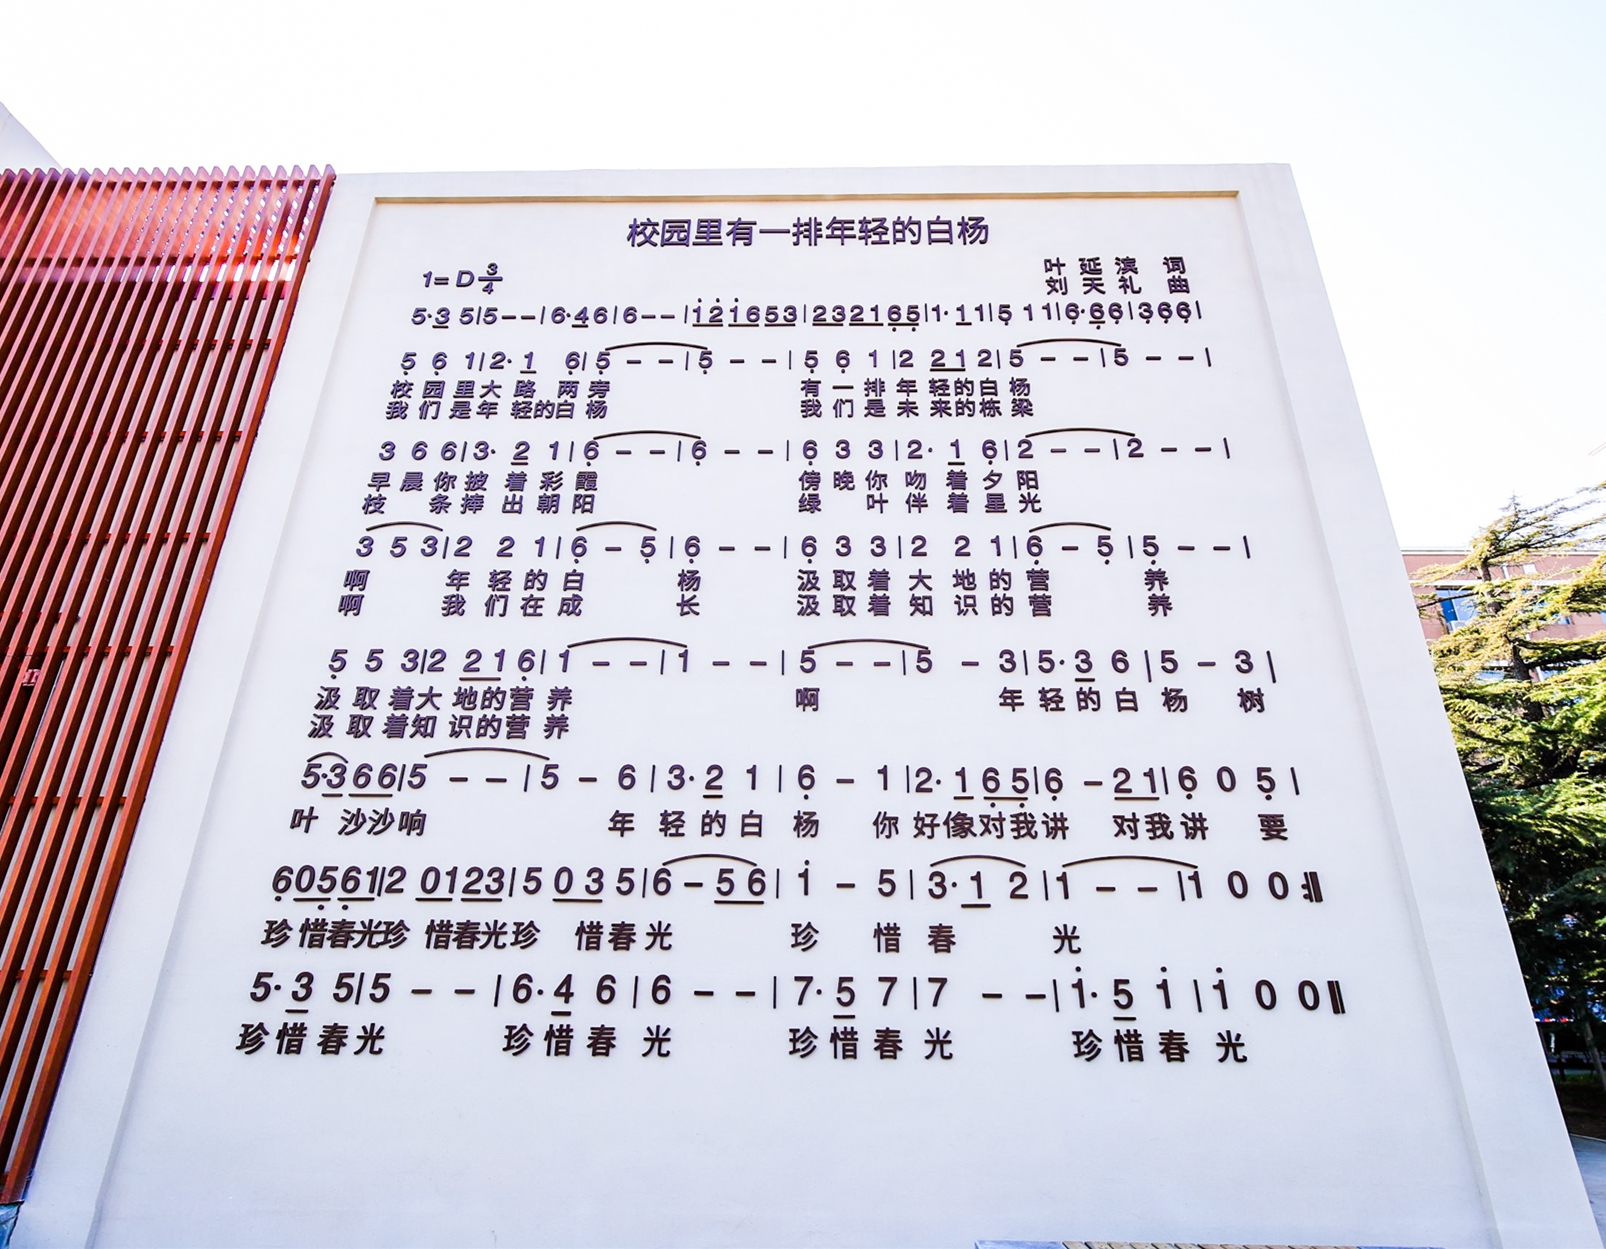 校园里有一排年轻的白杨
1=D 3/4
叶延滨 词
刘天礼 曲
5·3 5|5--|6·46|6--|i2i653|232165|1·11|5 11|6·66|366|
5 6 1|2·1 6|5--|5--|5 6 1|2 21 2|5--|5--|
校园里大路两旁 有一排年轻的白杨
我们是年轻的白杨 我们是未来的栋梁
3 6 6|3·2 1|6--|6--|6 3 3|2·1 6|2--|2--|
早晨你披着彩霞 傍晚你吻着夕阳
枝条捧出朝阳 绿叶伴着星光
3 5 3|2 2 1|6-5|6--|6 3 3|2 2 1|6-5|5--|
啊 年轻的白杨 汲取着大地的营养
啊 我们在成长 汲取着知识的营养
5 5 3|2 21 6|1--|1--|5--|5-3|5·3 6|5-3|
汲取着大地的营养 啊 年轻的白杨树
汲取着知识的营养
5·3 66|5--|5-6|3·2 1|6-1|2·1 65|6-21|6 0 5|
叶沙沙响 年轻的白杨 你好像对我讲 对我讲 要
60561|2 0123|5 03 5|6-56|i-5|3·1 2|1--|1 0 0:‖
珍惜春光珍惜春光珍惜春光 珍惜春光
5·3 5|5--|6·4 6|6--|7·5 7|7--|i·5 i|i 0 0‖
珍惜春光 珍惜春光 珍惜春光 珍惜春光